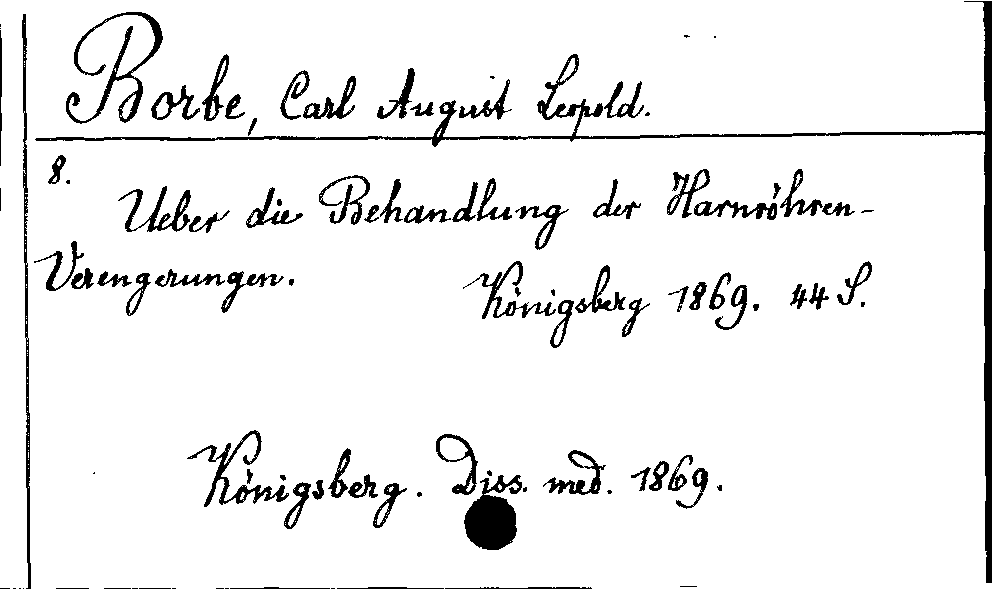 Borbe, Carl August Leopold.
8.
Ueber die Behandlung der Harnröhren-
Verengerungen.
Königsberg 1869. 44 S.
Königsberg. Diss. med. 1869.